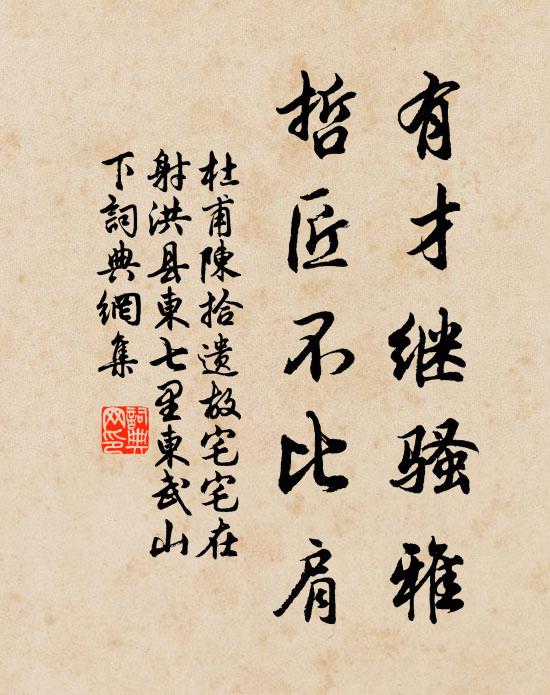 有才继骚雅
哲匠不比肩
杜甫陳拾遗故宅宅在
射洪县東七里東武山
下詞典網集
詞典
网印